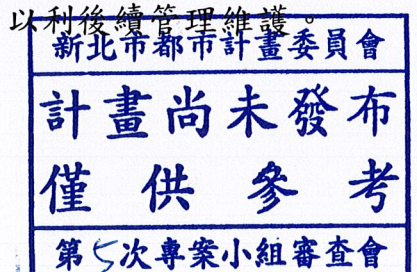 以利後續管理維護。
新北市都市計畫委員會
計畫尚未發布
僅供參考
第5次專案小組審查會